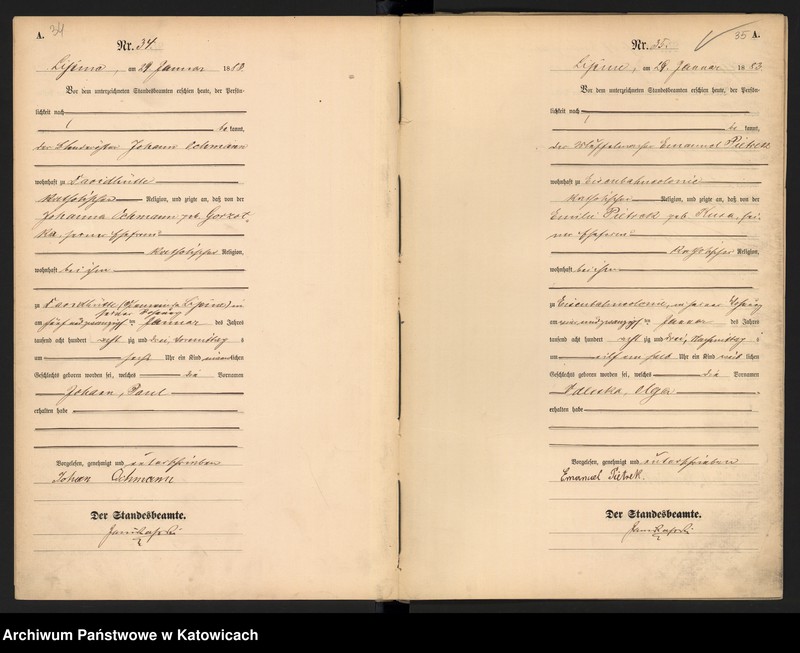 A. 34
Nr. 34.
Lipine, am 29. Januar 1883.
Vor dem unterzeichneten Standesbeamten erschien heute, der Persön-
lichkeit nach
bekannt,
der Johann Ochmann
wohnhaft zu Davidhütte
katholischer Religion, und zeigte an, daß von der
Johanna Ochmann geb. Gorzot-
ka, seiner Ehefrau
katholischer Religion,
wohnhaft bei ihm
zu Davidhütte Lipine) in
seiner Wohnung
am fünf und zwanzigsten Januar des Jahres
tausend acht hundert achtzig und drei, Vormittags
um sechs Uhr ein Kind männlichen
Geschlechts geboren worden sei, welches die Vornamen
Johann, Paul
erhalten habe
Vorgelesen, genehmigt und unterschrieben
Johann Ochmann
Der Standesbeamte.
35 A.
Nr. 35.
Lipine, am 29. Januar 1883.
Vor dem unterzeichneten Standesbeamten erschien heute, der Persön-
lichkeit nach
bekannt,
der Emanuel Pietrek
wohnhaft zu Eisenbahncolonie
katholischer Religion, und zeigte an, daß von der
Emilie Pietrek geb. Kusa, sei-
ner Ehefrau
katholischer Religion,
wohnhaft bei ihm
zu Eisenbahncolonie, in seiner Wohnung
am und zwanzigsten Januar des Jahres
tausend acht hundert achtzig und drei, Nachmittags
um elf ein halb Uhr ein Kind weiblichen
Geschlechts geboren worden sei, welches die Vornamen
Valeska, Olga
erhalten habe
Vorgelesen, genehmigt und unterschrieben
Emanuel Pietrek.
Der Standesbeamte.
Archiwum Państwowe w Katowicach